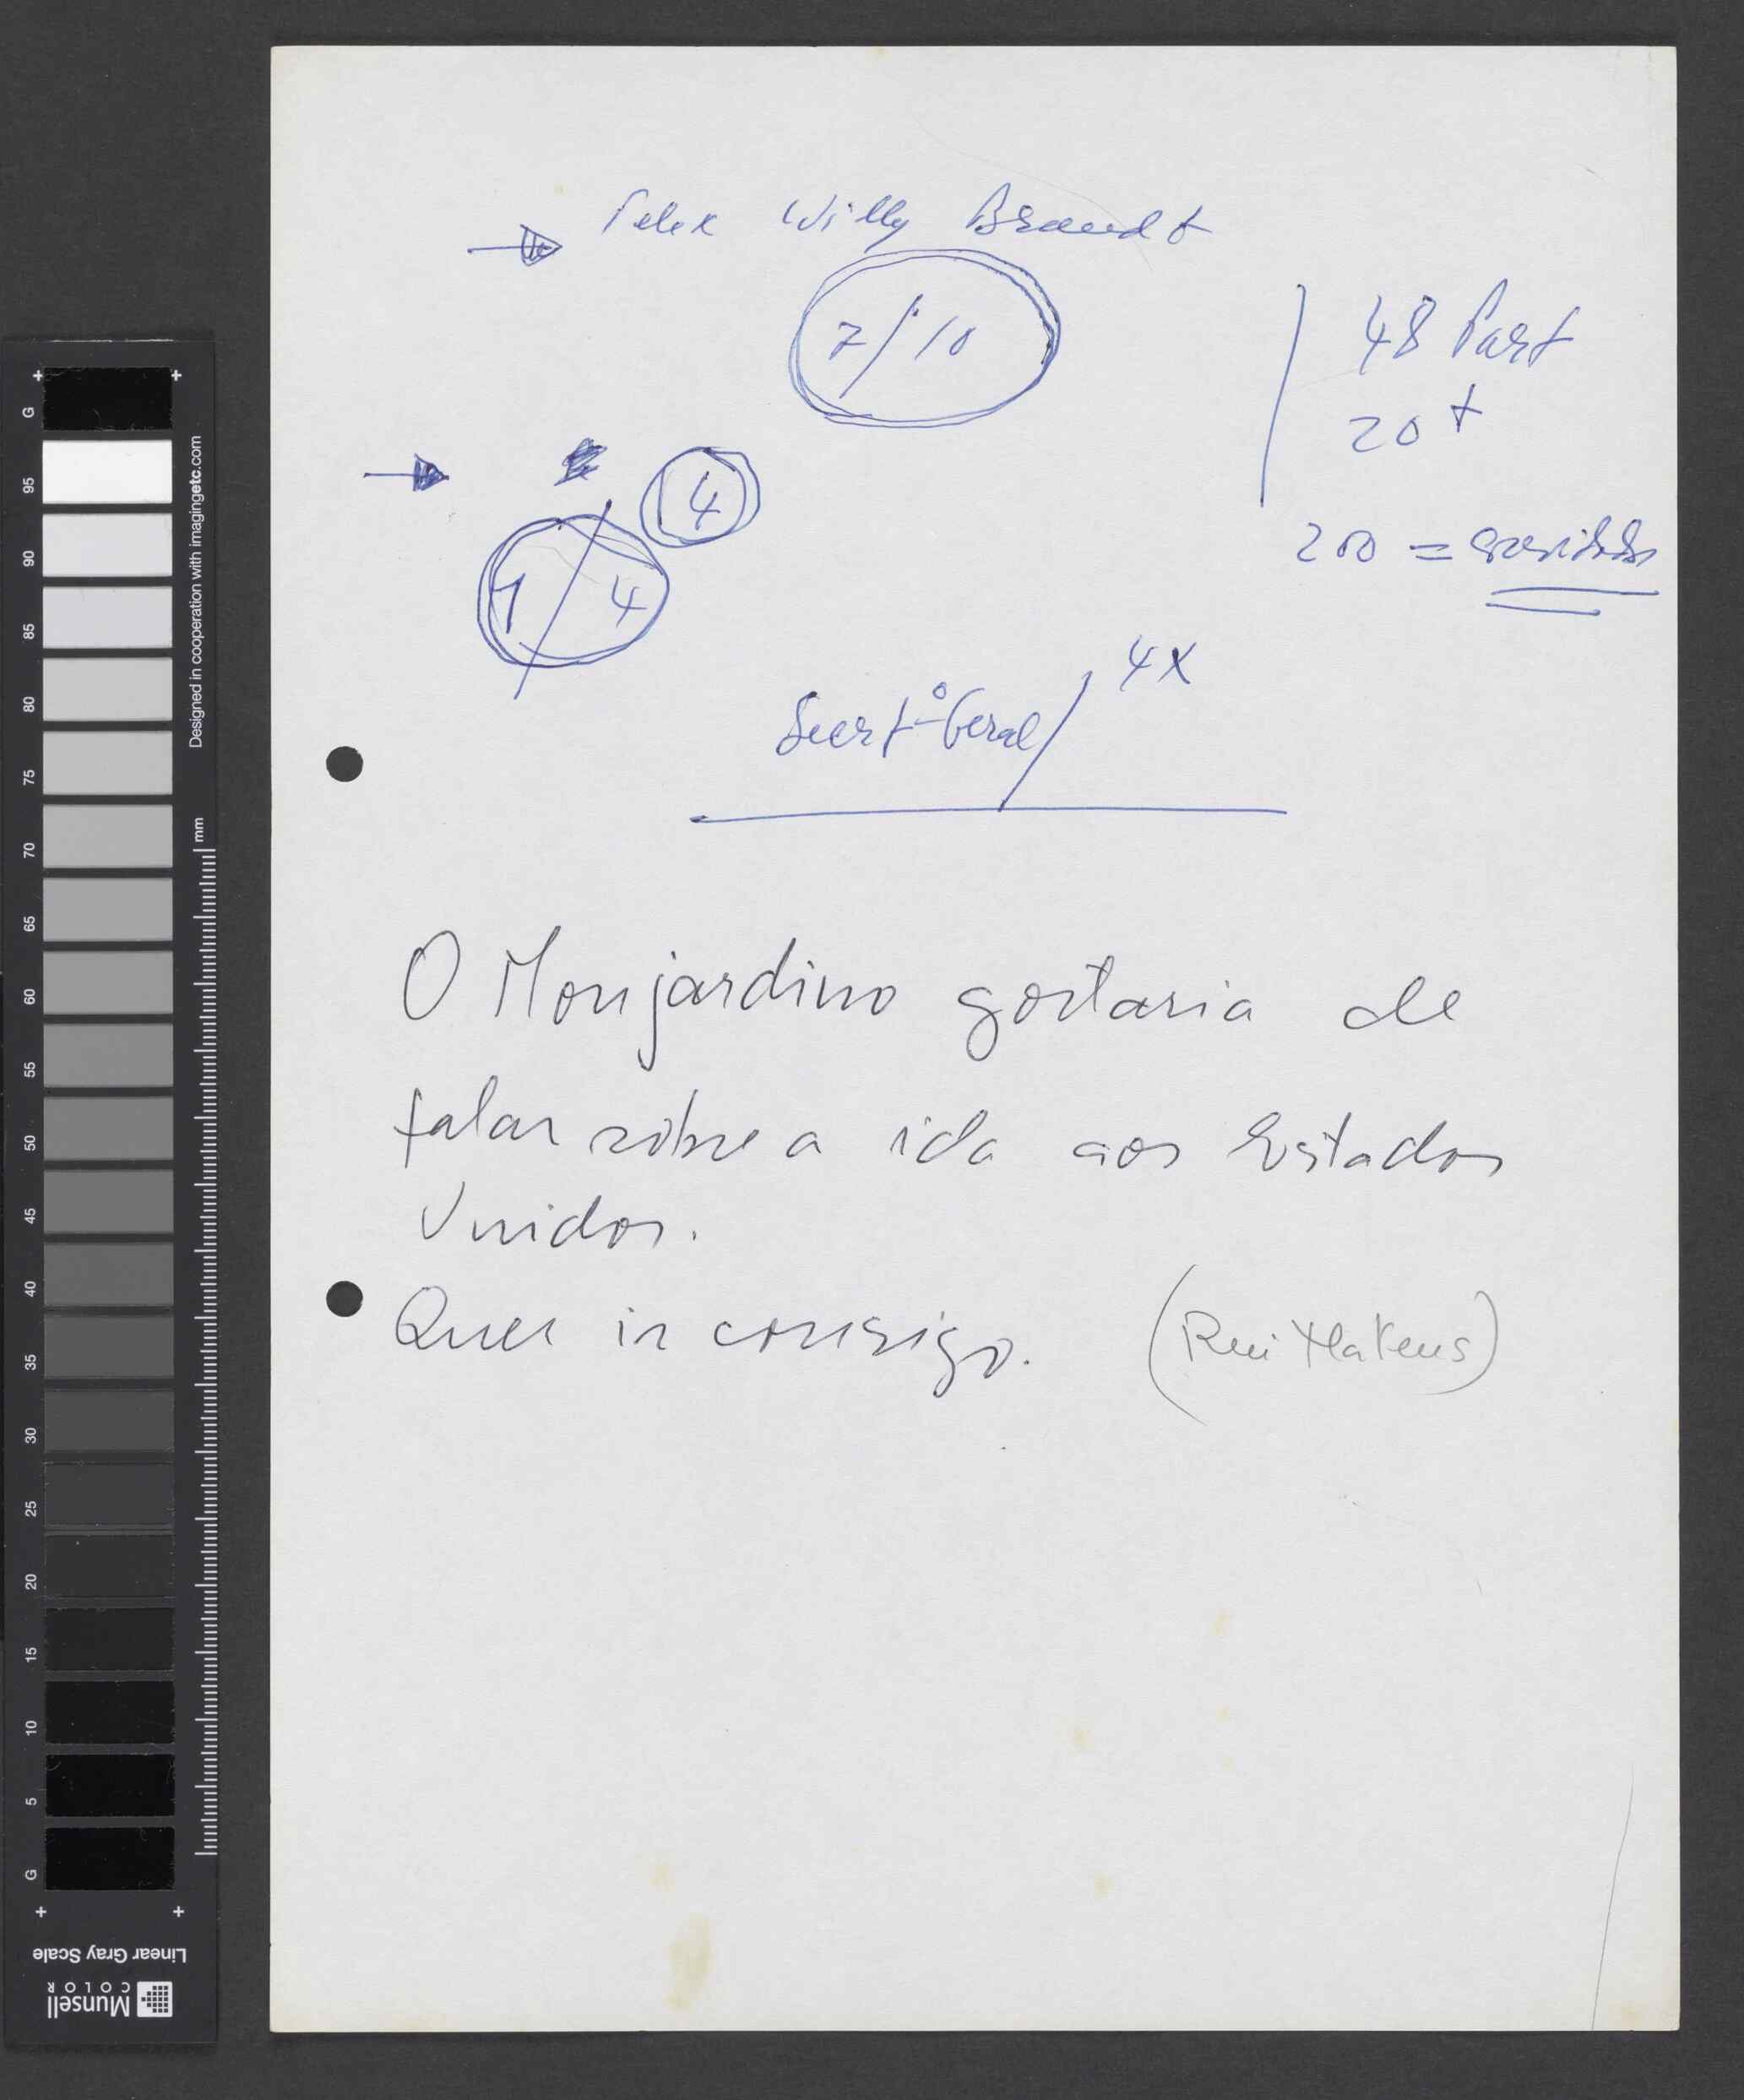 Telex Willy Brandt
7/10
48 Part
20 +
4
1/4
200 = convidados
4x
Secrt-º Geral/
O Monjardino gostaria de
falar sobre a ida aos Estados
Unidos.
Quer ir consigo. (Rui Mateus)
G
95
90
85
80
75
70
65
60
55
50
45
40
35
30
25
20
15
10
5
G
mm
Designed in cooperation with imagingetc.com
Linear Gray Scale
Munsell
COLOR